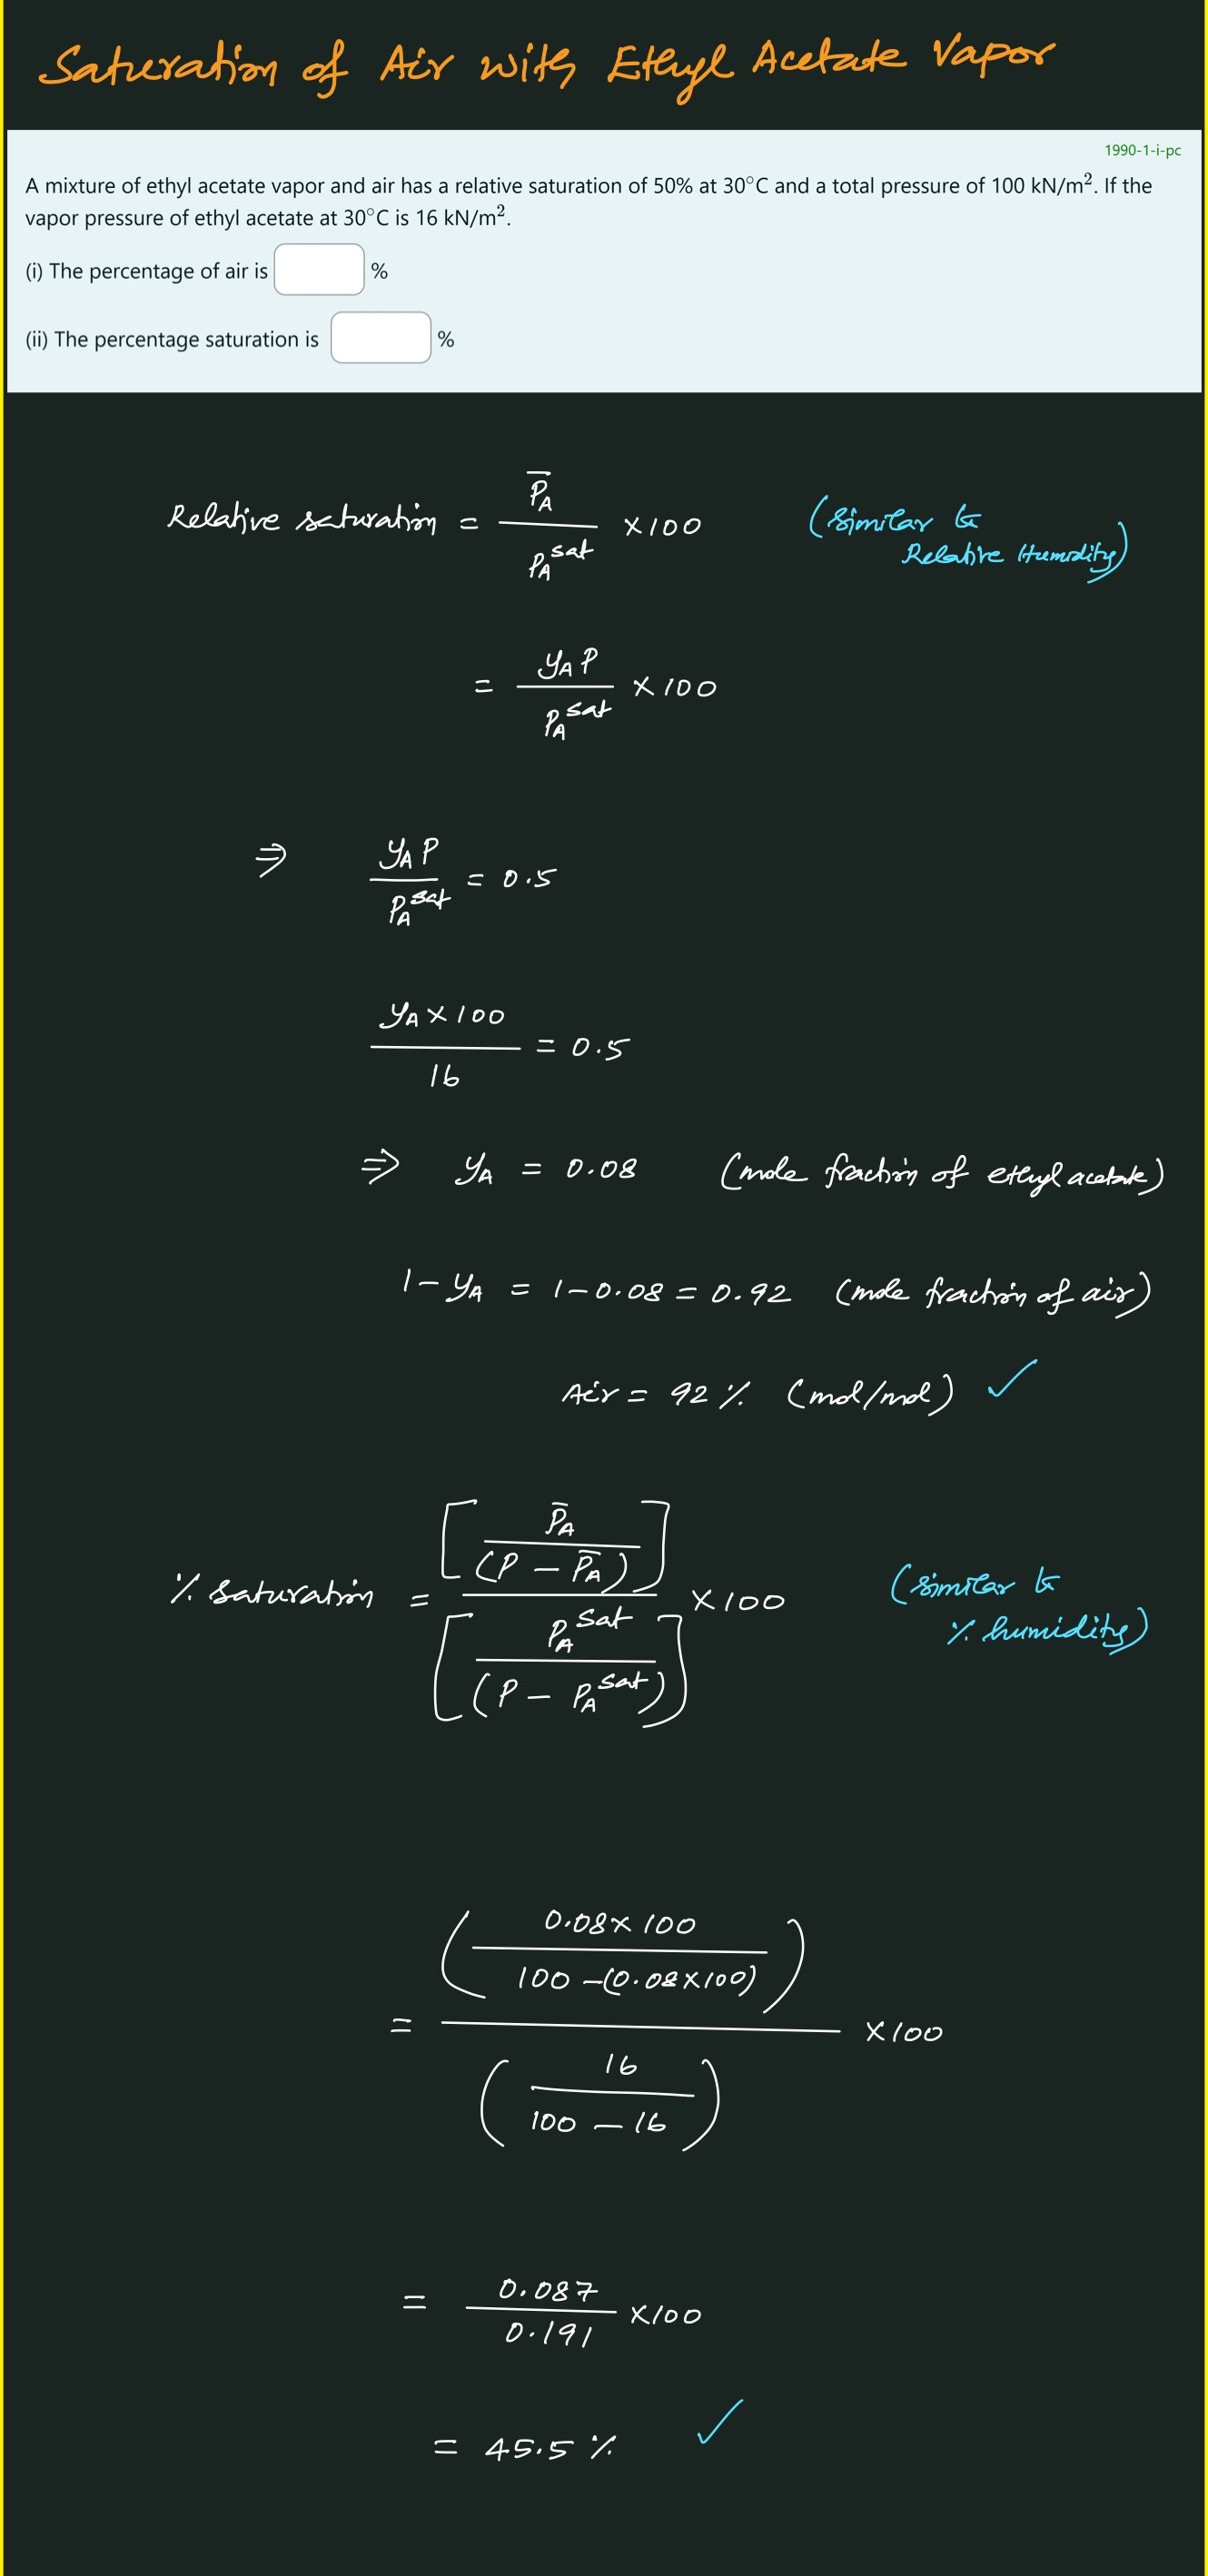 Saturation of Air with Ethyl Acetate Vapor
1990-1-i-pc
A mixture of ethyl acetate vapor and air has a relative saturation of 50% at 30°C and a total pressure of 100 kN/m². If the
vapor pressure of ethyl acetate at 30°C is 16 kN/m².
(i) The percentage of air is %
(ii) The percentage saturation is %
Relative saturation = P̄_A / P_A^sat × 100 (similar to
Relative Humidity)
= y_A P / P_A^sat × 100
⇒ y_A P / P_A^sat = 0.5
y_A × 100 / 16 = 0.5
⇒ y_A = 0.08 (mole fraction of ethyl acetate)
1 - y_A = 1 - 0.08 = 0.92 (mole fraction of air)
Air = 92 % (mol/mol) ✓
% saturation = [P̄_A / (P - P̄_A)] / [P_A^sat / (P - P_A^sat)] × 100 (similar to
% humidity)
= (0.08 × 100 / 100 - (0.08 × 100)) / (16 / 100 - 16) × 100
= 0.087 / 0.191 × 100
= 45.5 % ✓